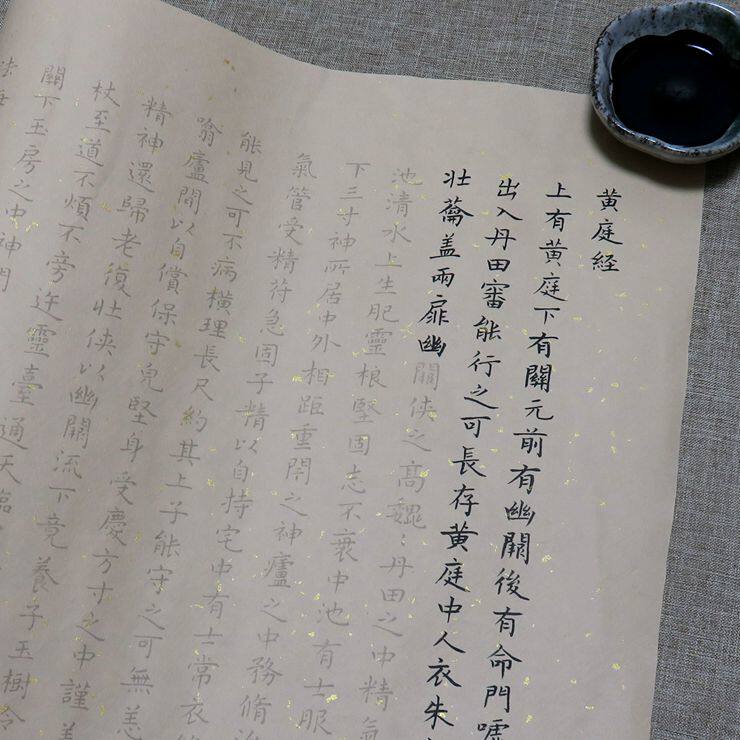 黄庭経
上有黄庭下有關元前有幽闕後有命門噓
出入丹田審能行之可長存黄庭中人衣朱
壯蘥盖兩扉幽關侠之髙魏:丹田之中精氣
池清水上生肥靈根堅固志不衰中池有士服
下三寸神所居中外相距重閇之神廬之中務脩
氣管受精符急固子精以自持宅中有士常衣
能見之可不病橫理長尺約其上子能守之可無恙
翁廬間以自償保守皃堅身受慶方寸之中謹盖
精神還歸老復壯侠以幽關流下竟養子玉樹令
杖至道不煩不旁迕靈臺通天臨
關下玉房之中神門